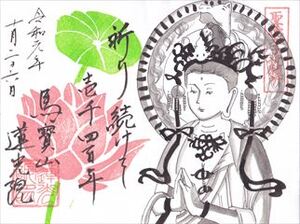 祈り続けて
壱千四百年
馬寳山
蓮光院
令和元年
十月二十六日